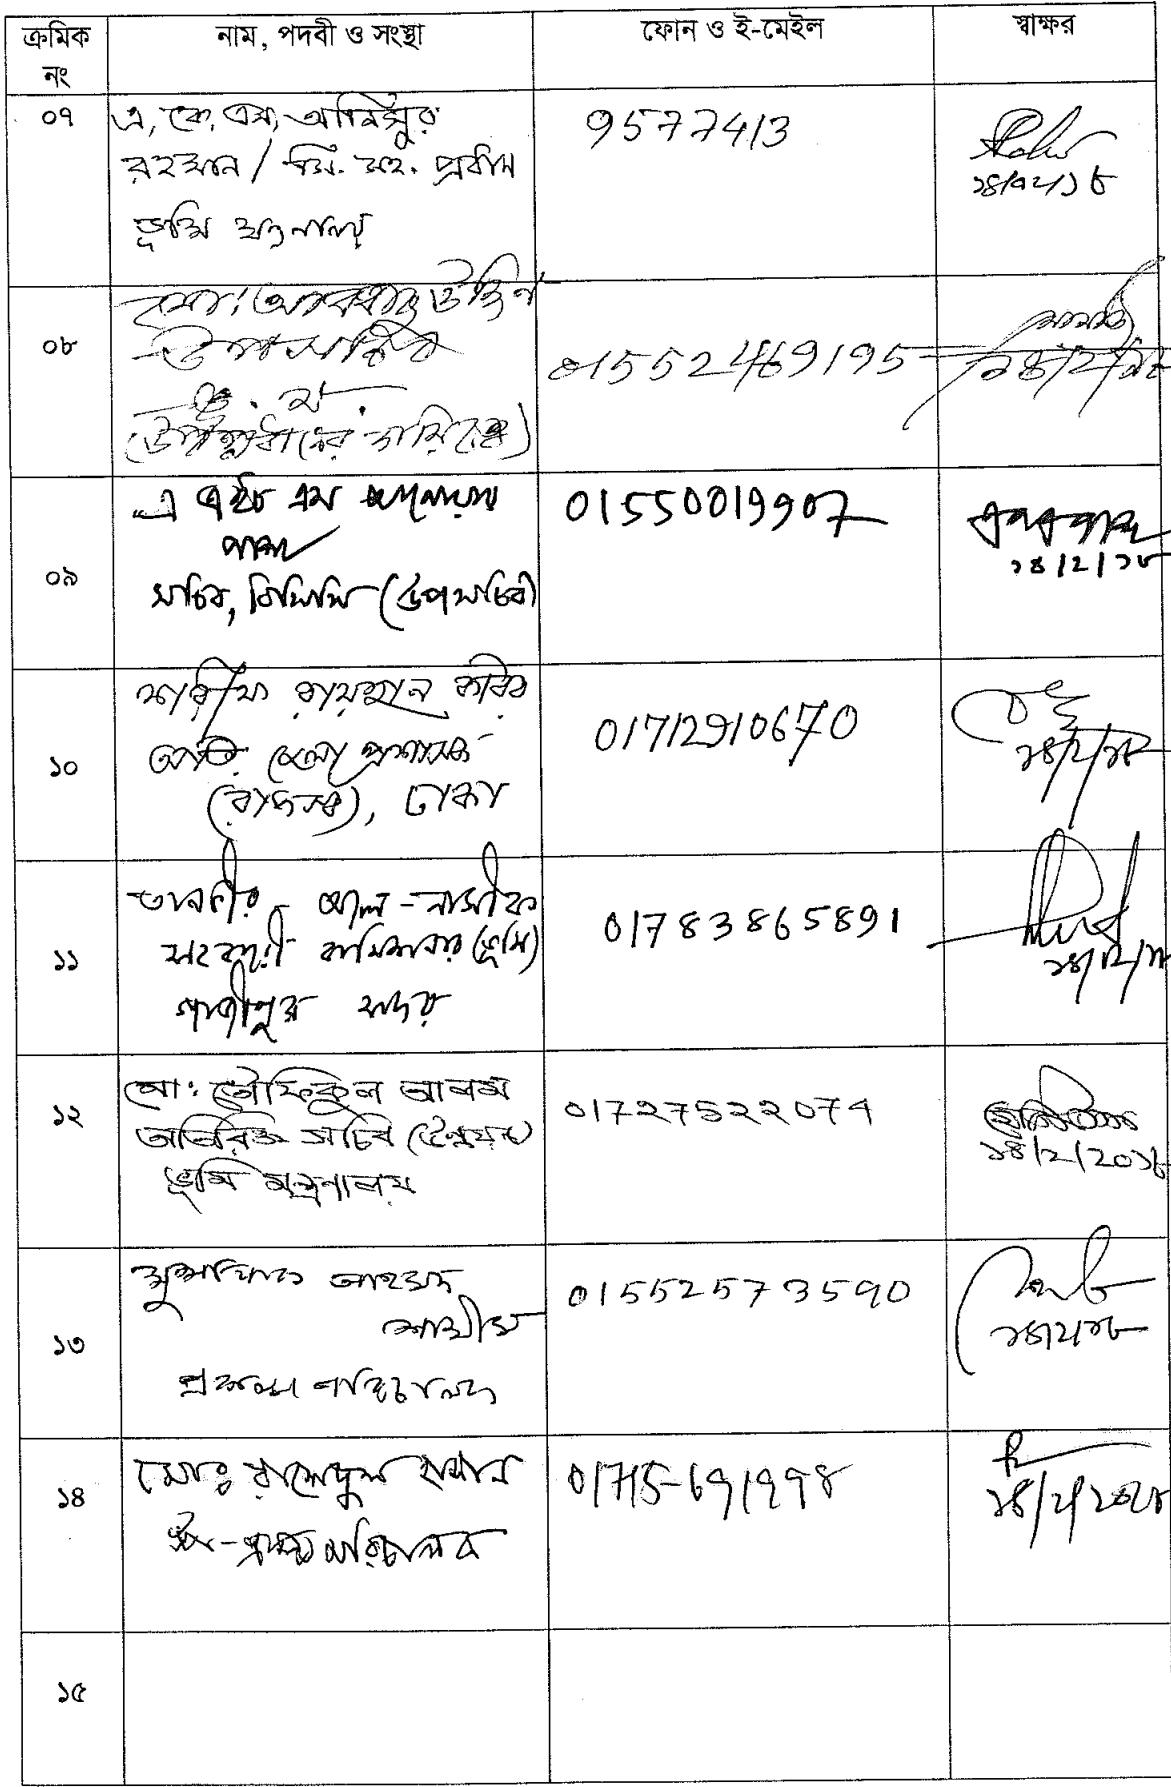 ক্রমিক নং
নাম, পদবী ও সংস্থা
ফোন ও ই-মেইল
স্বাক্ষর
০৭
এ, কে, এম, আনিসুর
রহমান / সি. সহ. প্রধান
ভূমি মন্ত্রণালয়
9577413
১৪/০২/১৮
০৮
উপসচিব
ভূ. ম.
01552469195
১৪/২/১৮
০৯
এ এইচ এম আনোয়ার
পাশা
সচিব, বিসিসি (উপসচিব)
01550019907
১৪/২/১৮
১০
শারীফ রায়হান কবির
অতি: জেলা প্রশাসক
(রাজস্ব), ঢাকা
01712910670
১৪/২/১৮
১১
তানভীর আল-নাসীফ
সহকারী কমিশনার (ভূমি)
গাজীপুর সদর
01783865891
১৪/২/১৮
১২
মো: তৌফিকুল আলম
অতিরিক্ত সচিব (উন্নয়ন)
ভূমি মন্ত্রণালয়
01727522074
১৪/2/20১৮
১৩
আহমদ
শামীম
প্রকল্প পরিচালক
01552573590
১৪/২/১৮
১৪
মোঃ রাশেদুল হাসান
উপ-প্রকল্প পরিচালক
01715-691998
১৪/২/২০১৮
১৫